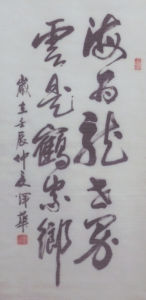 海為龍世界
雲是鶴家鄉
歲在壬辰仲夏澤華